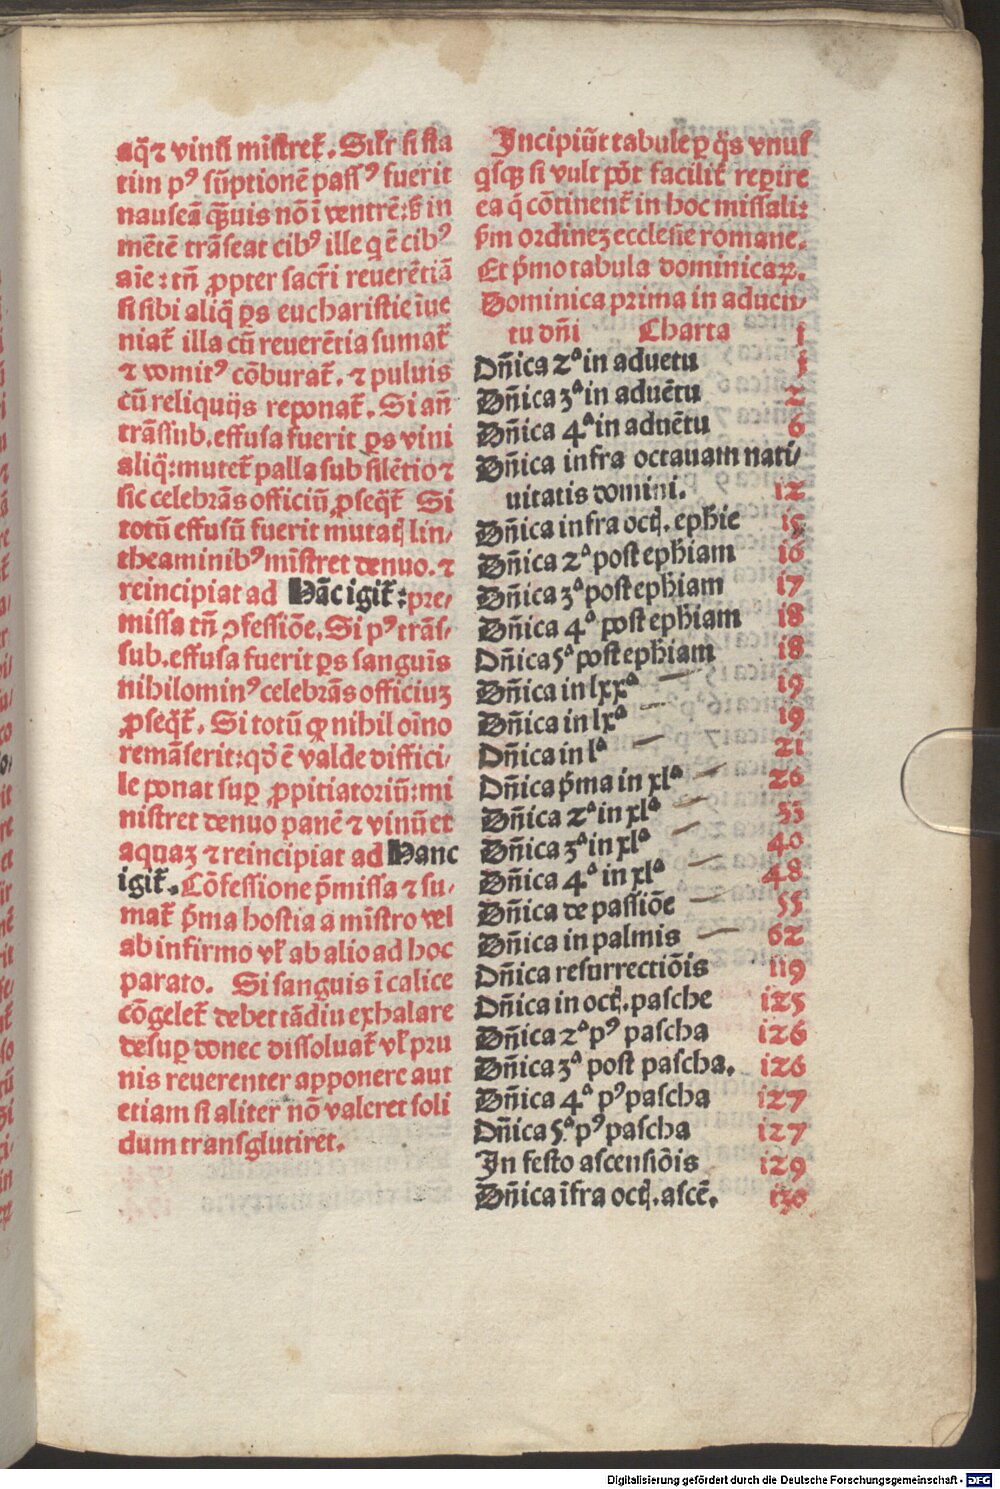 aq̃ ⁊ vinũ mĩstret̃. Silr̃ si sta
tim pꝰ sũptionẽ passꝰ fuerit
nauseã q̃uis nõ ĩ ventrẽ: s̃ in
mẽtẽ trãseat cibꝰ ille q̃ ẽ cibꝰ
aĩe: tñ ꝓpter sacr̃i reuerẽtiã
si sibi aliq̃ ꝑs eucharistie ĩue
niat̃ illa cũ reuerẽtia sumat̃
⁊ vomitꝰ cõburat̃. ⁊ puluis
cũ reliquijs reponat̃. Si añ
trãssub. effusa fuerit ꝑs vini
aliq̃: mutet̃ palla sub silẽtio ⁊
sic celebrãs officiũ ꝓseq̃t̃ Si
totũ effusũ fuerit mutaq̃ lin/
theaminibꝰ mĩstret denuo. ⁊
reincipiat ad Hãc igit̃: pre/
missa tñ ꝯfessiõe. Si pꝰ trãs/
sub. effusa fuerit ꝑs sanguĩs
nihilominꝰ celebrãs officiuꝫ
ꝓseq̃t̃. Si totũ ꝙ nihil oĩno
remãserit: qõ ẽ valde diffici/
le ponat suꝑ ꝓpitiatoriũ: mi
nistret denuo panẽ ⁊ vinũ et
aquaꝫ ⁊ reincipiat ad Hanc
igit̃. Cõfessione p̃missa ⁊ su/
mat̃ p̃ma hostia a mĩstro vel
ab infirmo vł ab alio ad hoc
parato. Si sanguis ĩ calice
cõgelet̃ debet tãdiu exhalare
desuꝑ donec dissoluat̃ vł pru
nis reuerenter apponere aut
etiam si aliter nõ valeret soli
dum transglutiret.
Incipiũt tabule ꝑ q̃s vnus
qsqꝫ si vult põt facilit̃ reꝑire
ea q̃ cõtinent̃ in hoc missali:
ẜm ordineꝫ ecclesie romane.
Et p̃mo tabula dominicaꝝ.
Dominica prima in aduen/
tu dñi Charta 1
Dñica 2ᵃ in aduẽtu 1
Dñica 3ᵃ in aduẽtu 2
Dñica 4ᵃ in aduẽtu 6
Dñica infra octauam nati/
uitatis domini. 12
Dñica infra octq̃. ephie 15
Dñica 2ᵃ post ephiam 16
Dñica 3ᵃ post ephiam 17
Dñica 4ᵃ post ephiam 18
Dñica 5ᵃ post ephiam 18
Dñica in lxxᵃ 19
Dñica in lxᵃ 19
Dñica in lᵃ 21
Dñica p̃ma in xlᵃ 26
Dñica 2ᵃ in xlᵃ 33
Dñica 3ᵃ in xlᵃ 40
Dñica 4ᵃ in xlᵃ 48
Dñica de passiõe 55
Dñica in palmis 62
Dñica resurrectiõis 119
Dñica in octq̃. pasche 125
Dñica 2ᵃ pꝰ pascha 126
Dñica 3ᵃ post pascha. 126
Dñica 4ᵃ pꝰ pascha 127
Dñica 5ᵃ pꝰ pascha 127
In festo ascensiõis 129
Dñica ĩfra octq̃. ascẽ. 130
Digitalisierung gefördert durch die Deutsche Forschungsgemeinschaft - DFG